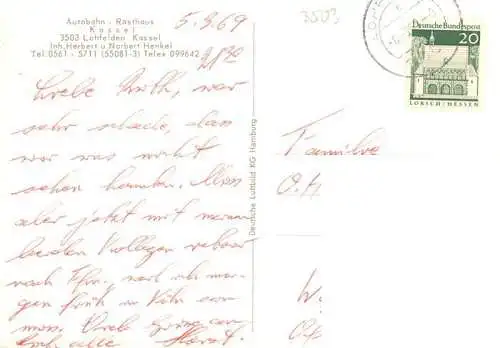 Autobahn - Rasthaus
Kassel
3503 Lohfelden Kassel
Inh. Herbert u. Norbert Henkel
Tel. 0561 - 5711 (55081-3) Telex 099642
5.3.69
3503
Liebe Ruth, war
sehr schade, das
wir uns nicht
sehen konnten. Muss
aber jetzt mit meinen
beiden Kollegen
nach
gen früh in Köln
alle Horst.
Deutsche Luftbild KG Hamburg
Deutsche Bundespost
20
LORSCH / HESSEN
Familie
O.